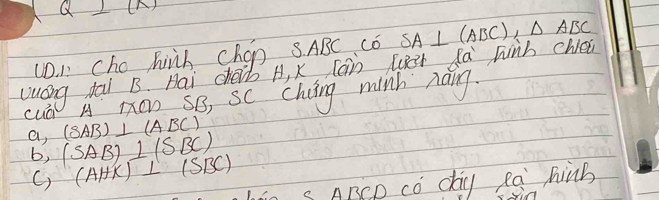 Q ⊥ (K)
VD1: Cho hình chóp S.ABC có SA ⊥ (ABC), Δ ABC
vuông tại B. Hai điểm H, K lần lượt là hình chiếu
của A trên SB, SC chứng minh rằng.
a, (SAB) ⊥ (ABC)
b, (SAB) ⊥ (SBC)
c, (AHK) ⊥ (SBC)
S ABCD có đáy là hình